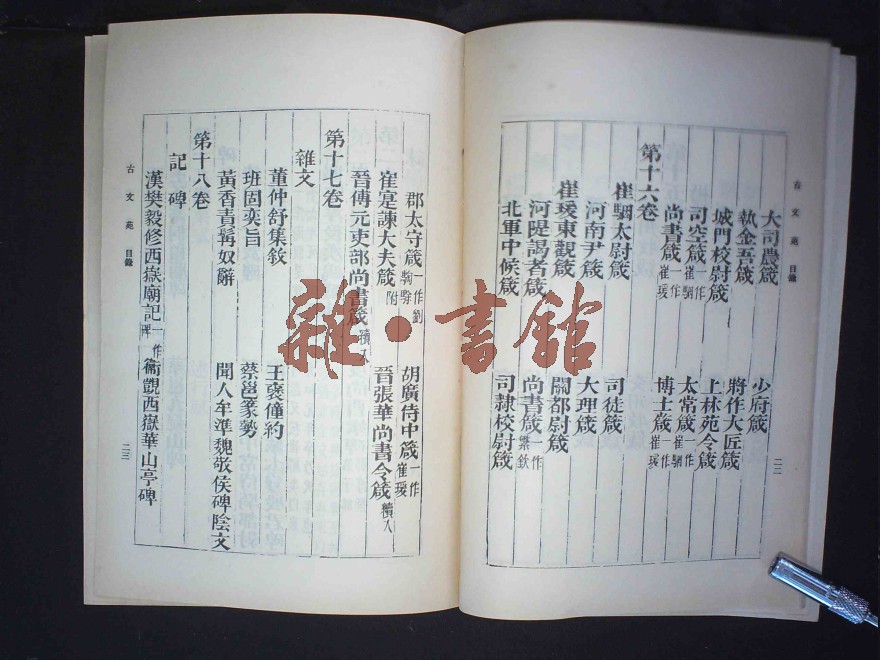 古文苑 目錄
大司農箴 少府箴
執金吾箴 將作大匠箴
城門校尉箴 上林苑令箴
司空箴一作崔駰 太常箴一作崔駰
尚書箴一作崔瑗 博士箴一作崔瑗
第十六卷
崔駰太尉箴 司徒箴
河南尹箴 大理箴
崔瑗東觀箴 關都尉箴
河隄謁者箴 尚書箴一作繁欽
北軍中候箴 司隷校尉箴
郡太守箴一作劉騊駼 胡廣侍中箴一作崔瑗
崔寔諫大夫箴附 晉張華尚書令箴續入
晉傅元吏部尚書箴續入
第十七卷
雜文
董仲舒集敘 王褒僮約
班固奕旨 蔡邕篆勢
黃香責髯奴辭 聞人牟準魏敬侯碑陰文
第十八卷
記 碑
漢樊毅修西嶽廟記一作碑 衞覬西嶽華山亭碑
古文苑 目錄
二三
雜·書館